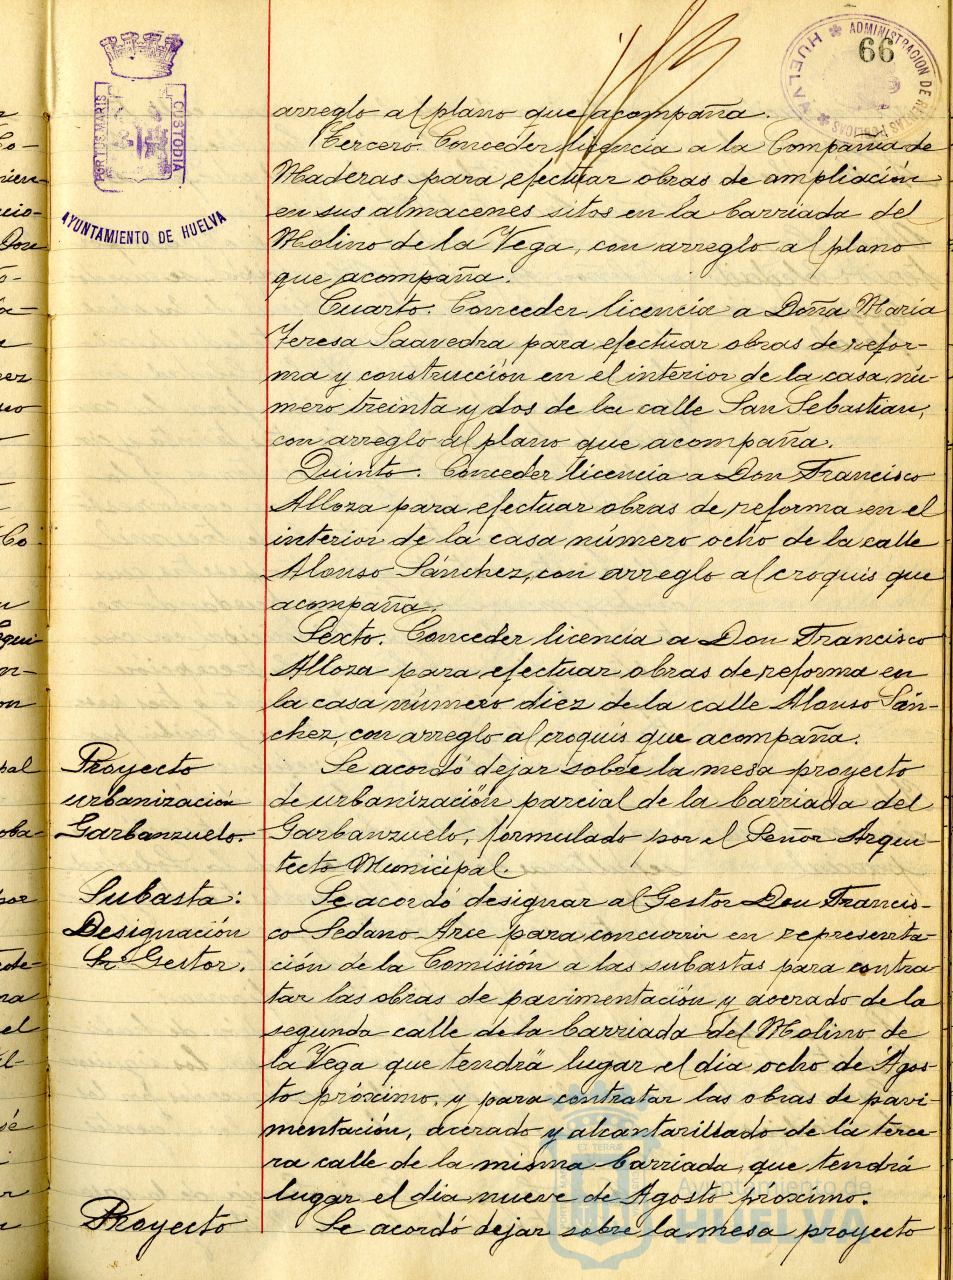 66
ADMINISTRACION DE RENTAS PUBLICAS
HUELVA
PORTUS MARIS
CUSTODIA
AYUNTAMIENTO DE HUELVA
arreglo al plano que acompaña.
Tercero. Conceder licencia a la Compañia de
Maderas para efectuar obras de ampliación
en sus almacenes sitos en la barriada del
Molino de la Vega, con arreglo al plano
que acompaña.
Cuarto. Conceder licencia a Doña Maria
Teresa Saavedra para efectuar obras de refor-
ma y construcción en el interior de la casa nú-
mero treinta y dos de la calle San Sebastian,
con arreglo al plano que acompaña.
Quinto. Conceder licencia a Don Francisco
Alloza para efectuar obras de reforma en el
interior de la casa número ocho de la calle
Alonso Sánchez, con arreglo al croquis que
acompaña.
Sexto. Conceder licencia a Don Francisco
Alloza para efectuar obras de reforma en
la casa número diez de la calle Alonso Sán-
chez, con arreglo al croquis que acompaña.
Proyecto
urbanización
Garbanzuelo.
Se acordó dejar sobre la mesa proyecto
de urbanización parcial de la barriada del
Garbanzuelo, formulado por el Señor Arqui-
tecto Municipal.
Subasta:
Designación
Gestor.
Se acordó designar al Gestor Don Francis-
co Sedano Arce para concurrir en representa-
ción de la Comisión a las subastas para contra-
tar las obras de pavimentación y acerado de la
segunda calle de la barriada del Molino de
la Vega que tendrá lugar el día ocho de Agos-
to próximo, y para contratar las obras de pavi-
mentación, acerado y alcantarillado de la terce-
ra calle de la misma barriada, que tendrá
lugar el dia nueve de Agosto próximo.
Proyecto
Se acordó dejar sobre la mesa proyecto
Ayuntamiento de
HUELVA